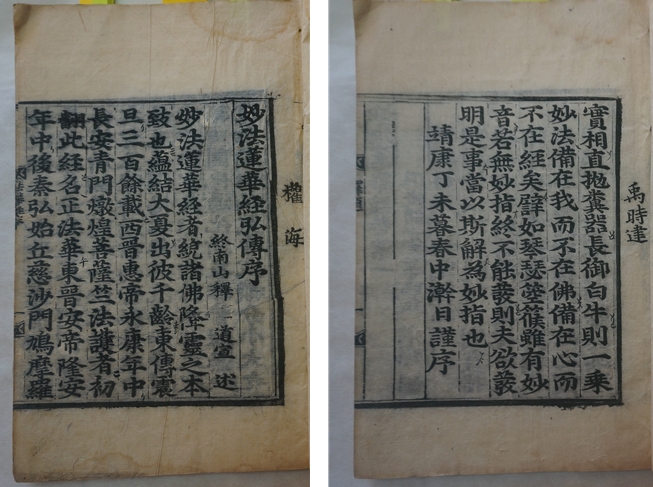 禹時達
實相直抛糞器長御白牛則一乘
妙法備在我而不在佛備在心而
不在経矣譬如琴瑟箜篌雖有妙
音若無妙指終不能發則夫欲發
明是事當以斯解為妙指也
靖康丁未暮春中澣日謹序
權海
妙法蓮華経弘傳序
終南山釋 道宣 述
妙法蓮華経者統諸佛降靈之本
致也蘊結大夏出彼千齡東傳震
旦三百餘載西晋惠帝永康年中
長安青門燉煌菩薩竺法護者初
翻此経名正法華東晋安帝隆安
年中後秦弘始丘慈沙門鳩摩羅